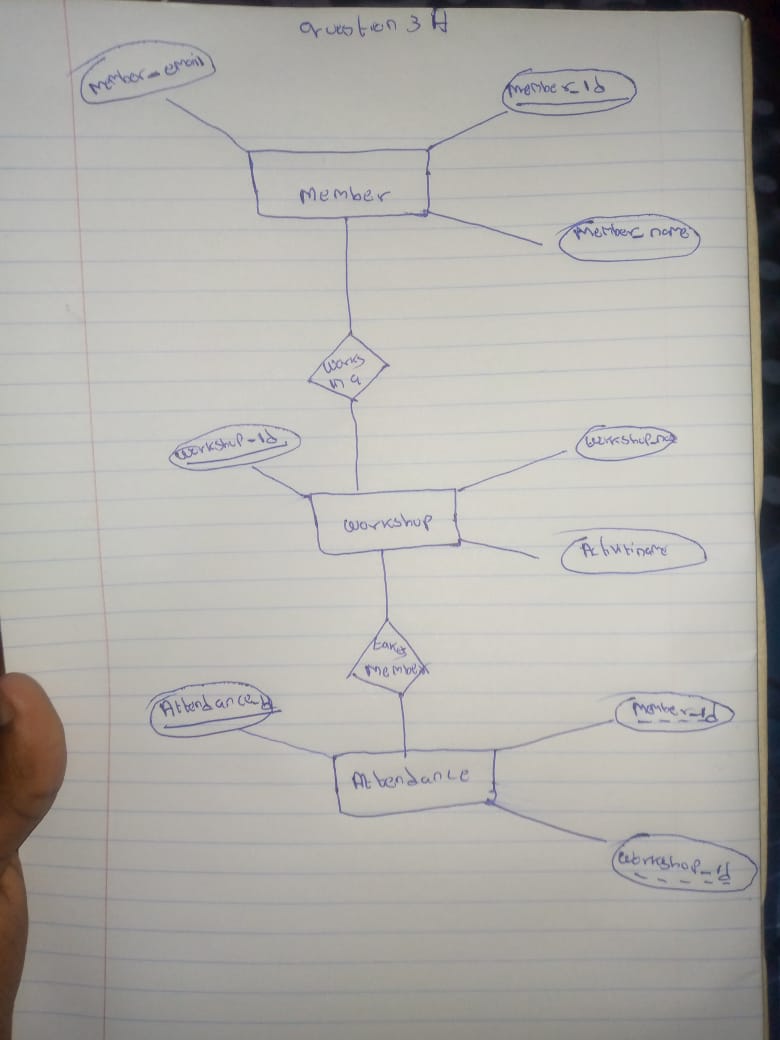 Question 3 A
Member_email
Member_Id
Member
Member_name
Works
in a
Workshop_Id
Workshop
takes
Member
Attendance_Id
Member_Id
Attendance
Workshop_id